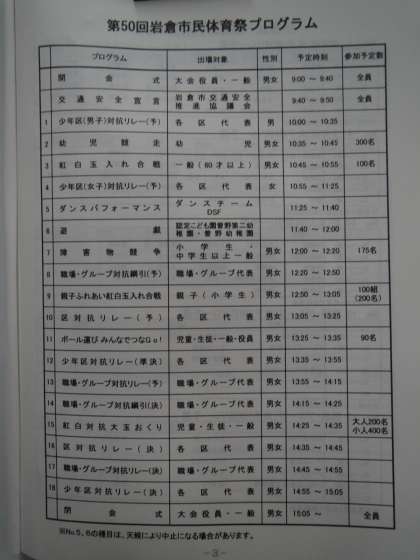 第50回岩倉市民体育祭プログラム
プログラム 出場対象 性別 予定時刻 参加予定数
開会式 大会役員・一般 男女 9:00 ～ 9:40 全員
交通安全宣言 岩倉市交通安全推進協議会 9:40 ～ 9:50 全員
1 少年区(男子)対抗リレー(予) 各区代表 男 10:00 ～ 10:35
2 幼児競走 幼児 男女 10:35 ～ 10:45 300名
3 紅白玉入れ合戦 一般(60才以上) 男女 10:45 ～ 10:55 100名
4 少年区(女子)対抗リレー(予) 各区代表 女 10:55 ～ 11:25
5 ダンスパフォーマンス ダンスチームDSF 11:25 ～ 11:40
6 遊戯 認定こども園曽野第二幼稚園・曽野幼稚園 11:40 ～ 12:00
7 障害物競争 小学生・中学生以上一般 男女 12:00 ～ 12:20 175名
8 職場・グループ対抗綱引(予) 職場・グループ代表 男女 12:20 ～ 12:50
9 親子ふれあい紅白玉入れ合戦 親子(小学生) 男女 12:50 ～ 13:05 100組(200名)
10 区対抗リレー(予) 各区代表 男女 13:05 ～ 13:25
11 ボール運び みんなでつなGo! 児童・生徒・一般・役員 男女 13:25 ～ 13:35 90名
12 少年区対抗リレー(準決) 各区代表 男女 13:35 ～ 13:55
13 職場・グループ対抗リレー(予) 職場・グループ代表 男女 13:55 ～ 14:15
14 職場・グループ対抗綱引(決) 職場・グループ代表 男女 14:15 ～ 14:25
15 紅白対抗大玉おくり 児童・生徒・一般 男女 14:25 ～ 14:35 大人200名 小人400名
16 区対抗リレー(決) 各区代表 男女 14:35 ～ 14:45
17 職場・グループ対抗リレー(決) 職場・グループ代表 男女 14:45 ～ 14:55
18 少年区対抗リレー(決) 各区代表 男女 14:55 ～ 15:05
閉会式 大会役員・一般 男女 15:05 ～ 全員
※No.5、6の種目は、天候により中止になる場合があります。
－3－